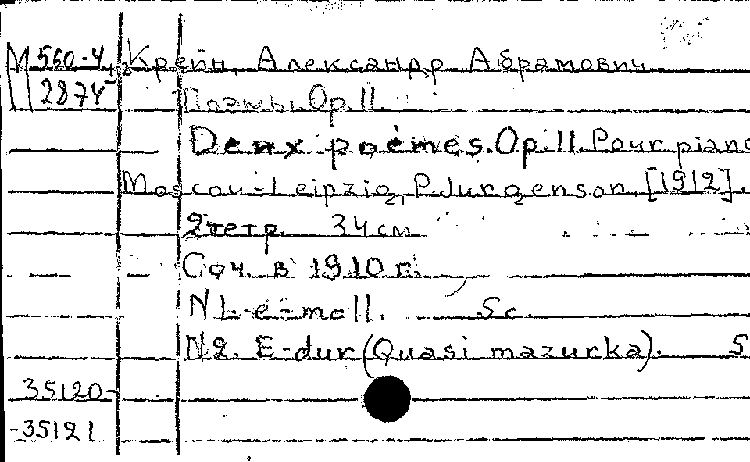 М 560-4, Крейн, Александр Абрамович
2874 Поэмы. Op. 11.
Deux poèmes. Op. 11. Pour piano
Moscou-Leipzig, P. Jurgenson, [1912].
2 тетр. 34 см
Соч. в 1910 г.
N 1. e-moll. 5 c.
N 2. E-dur (Quasi mazurka). 5
35120-
-35121